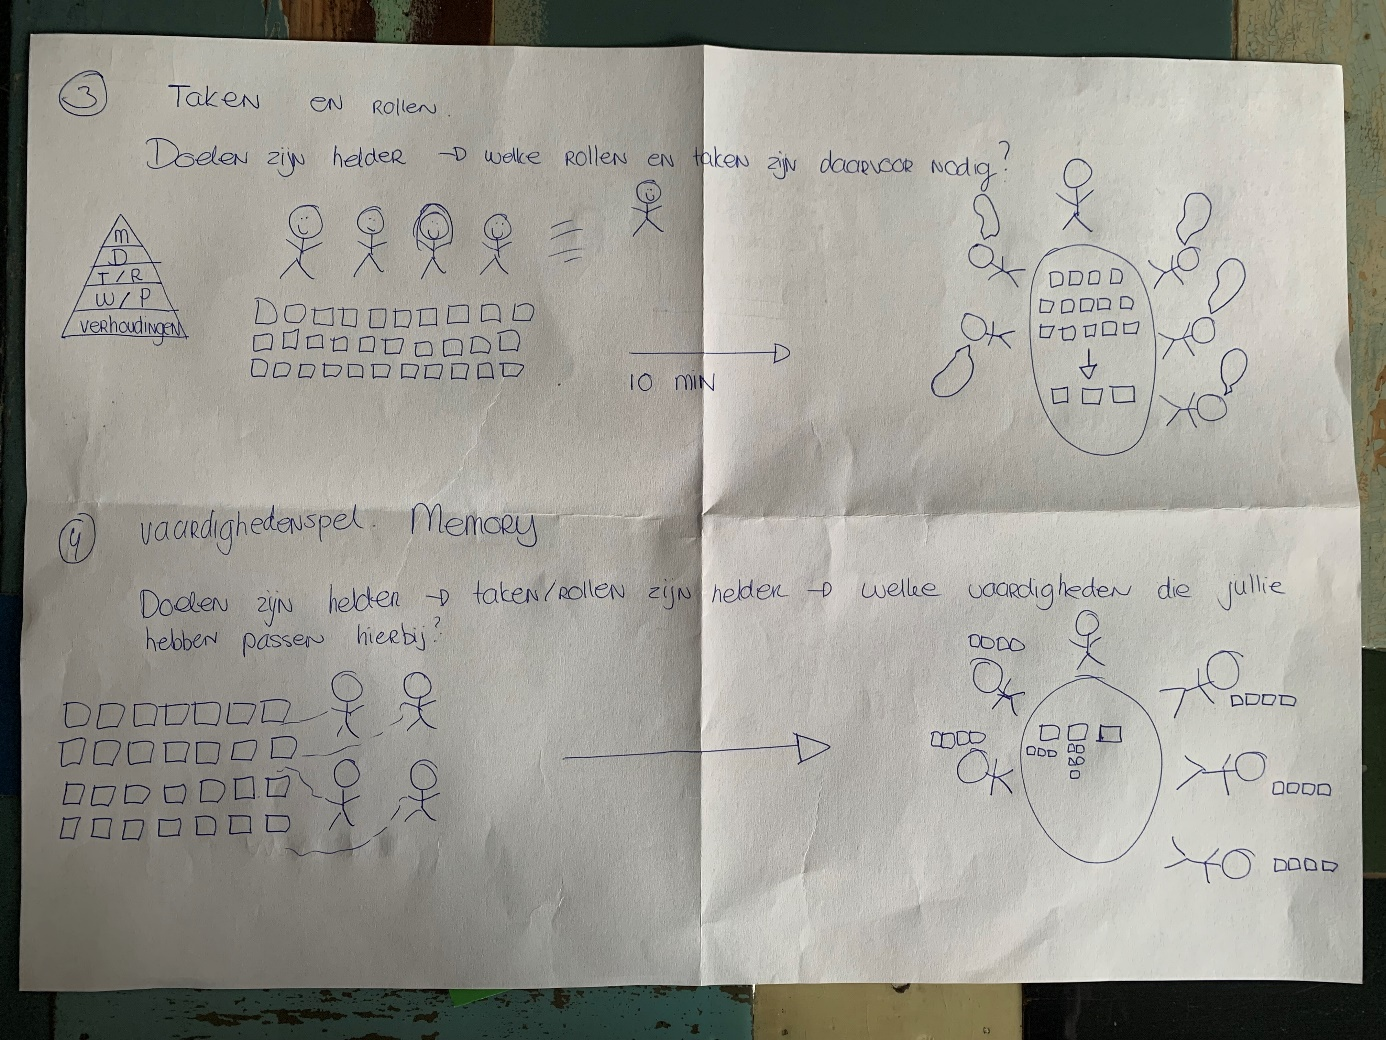 3 Taken en rollen.
Doelen zijn helder → welke rollen en taken zijn daarvoor nodig?
M
D
T/R
W/P
Verhoudingen
10 min
4 vaardighedenspel. Memory
Doelen zijn helder → taken/rollen zijn helder → welke vaardigheden die jullie
hebben passen hierbij?